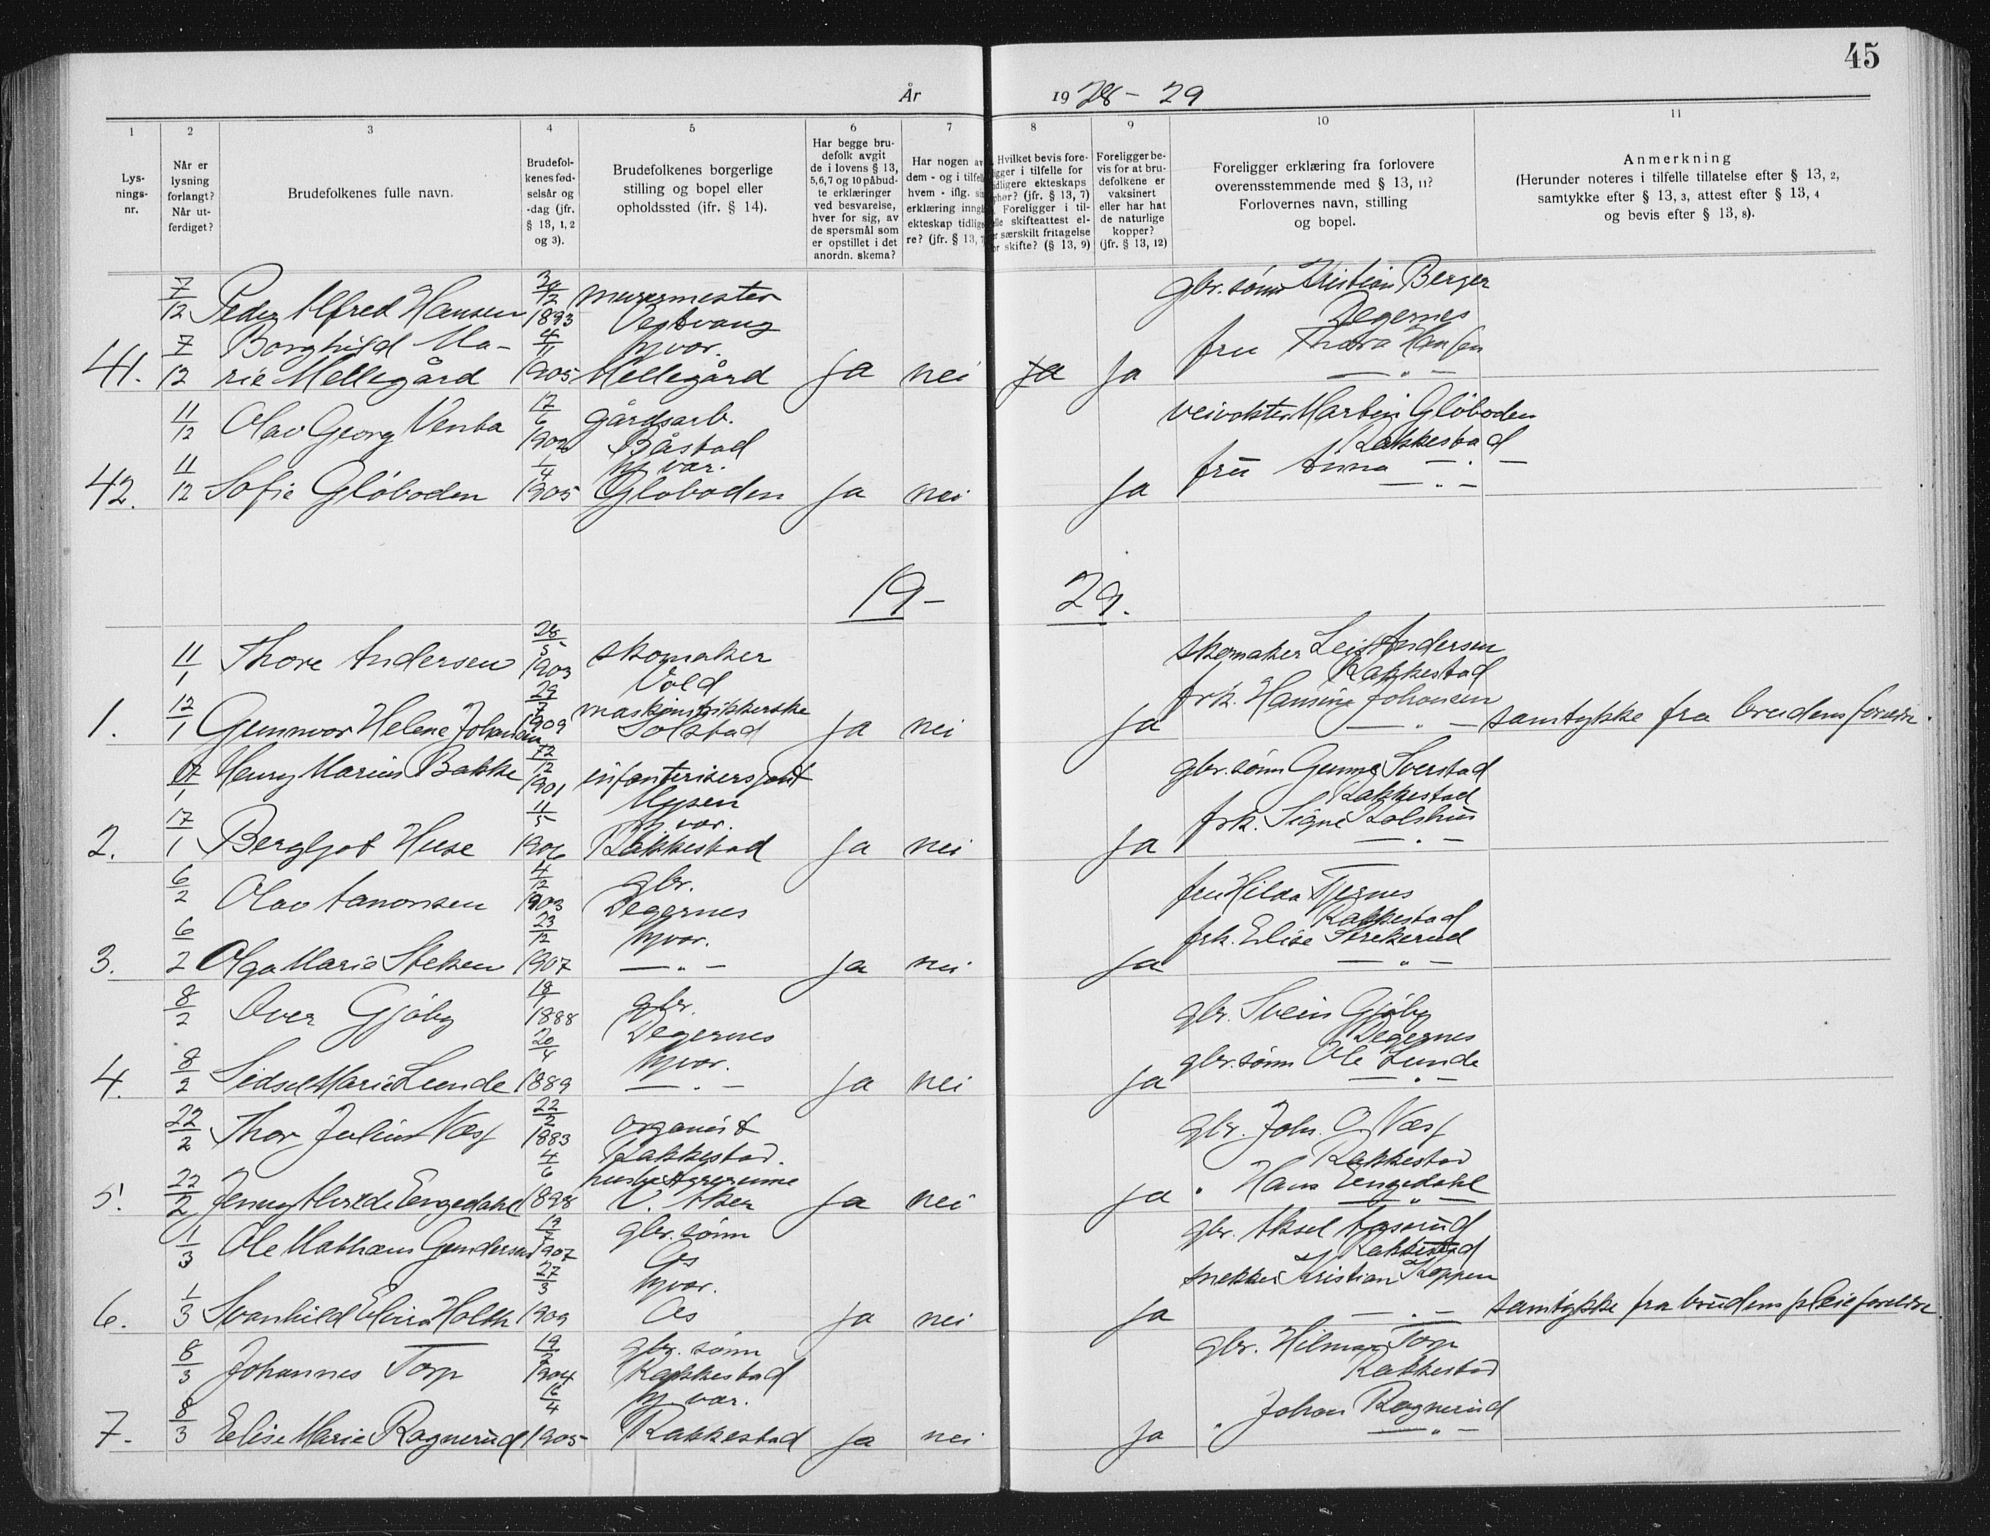 45
År 1928 - 29
1 2 3 4 5 6 7 8 9 10 11
Lys-
nings-
nr.
Når er
lysning
forlangt?
Når ut-
ferdiget?
Brudefolkenes fulle navn.
Brudefol-
kenes fød-
selsår og
-dag (jfr.
§ 13, 1, 2
og 3).
Brudefolkenes borgerlige
stilling og bopel eller
opholdssted (ifr. § 14).
Har begge bru-
defolk avgit
de i lovens § 13,
5,6,7 og 10 påbud-
te erklæringer
ved besvarelse,
hver for sig, av
de spørsmål som
er opstillet i det
anordn. skema?
Har nogen av
dem - og i tilfelle
hvem - iflg. si
erklæring inngå
ekteskap tidlige
re? (jfr. § 13, 7
Hvilket bevis fore-
igger i tilfelle for
idligere ekteskaps
phør? (jfr. § 13, 7)
Foreligger i til-
elle skifteattest el-
r særskilt fritagelse
or skifte? (§ 13, 9)
Foreligger be-
vis for at bru-
defolkene er
vaksinert
eller har hat
de naturlige
kopper?
(jfr. § 13, 12)
Foreligger erklæring fra forlovere
overensstemmende med § 13, 11?
Forlovernes navn, stilling
og bopel.
Anmerkning
(Herunder noteres i tilfelle tillatelse efter § 13, 2,
samtykke efter § 13, 3, attest efter § 13, 4
og bevis efter § 13, 8).
7/12 Peder Alfred Hansen 30/12 1893 murermester Vestvang gbr. sønn Kristian Berger
Degernes
7/12 Borghild Ma- 4/11 hj. vær. fru Thora Hansen
41. rie Mellegård 1905 Mellegård ja nei ja ja — " —
11/12 Olav Georg Venta 17/6 1902 gårdsarb. Båstad veivokter Martin Gløboden
Rakkestad
42. 11/12 Sofie Gløboden 1/4 1905 hj. vær. Gløboden ja nei ja fru Anna — " —
— " —
19- 29.
11/1 Thore Andersen 28/5 1903 skomaker Vold skomaker Leif Andersen
Rakkestad
1. 12/1 Gunnvor Helene Johansen 29/7 1909 maskinstrikkerske Solstad ja nei ja frk. Hansine Johansen — " — samtykke fra brudens foreldre.
17/1 Henry Marius Bakke 12/12 1901 infanterisersjant Mysen gbr. sønn Gunnar Sverstad
Rakkestad
2. 17/1 Bergljot Huse 11/5 1906 hj. vær. Rakkestad ja nei ja frk. Signe Kolshus
— " —
6/2 Olav Aamonsen 4/12 1903 gbr. Degernes fru Hilda Tjernes
Rakkestad
3. 6/2 Olga Marie Steken 23/12 1907 hj. vær. — " — ja nei ja frk. Elise Strekerud
— " —
8/2 Iver Gjøby 18/1 1888 gbr. Degernes gbr. Svein Gjøby
Degernes
4. 8/2 Sidsel Marie Lunde 20/4 1889 hj. vær. — " — ja nei ja gbr. sønn Ole Lunde
— " —
22/2 Thor Julius Næss 22/2 1883 organist Rakkestad. gbr. Johs. O. Næss
Rakkestad
5. 22/2 Jenny Alvilde Engedahl 4/6 1898 husbestyrerinne V. Aker ja nei ja " Hans Engedahl
— " —
1/3 Ole Mathæus Gundersen 1907 gbr. sønn Os gbr. Aksel Aaserud
Rakkestad
6. 1/3 Svanhild Elvira Holth 27/3 1909 hj. vær. Os ja nei ja snekker Kristian Koppen
— " — samtykke fra brudens pleieforeldre
8/3 Johannes Torp 1904 gbr. sønn Rakkestad gbr. Hilmar Torp
Rakkestad
7. 8/3 Elise Marie Ragnerud 16/4 1905 hj. vær. Rakkestad ja nei ja " Johan Ragnerud
— " —